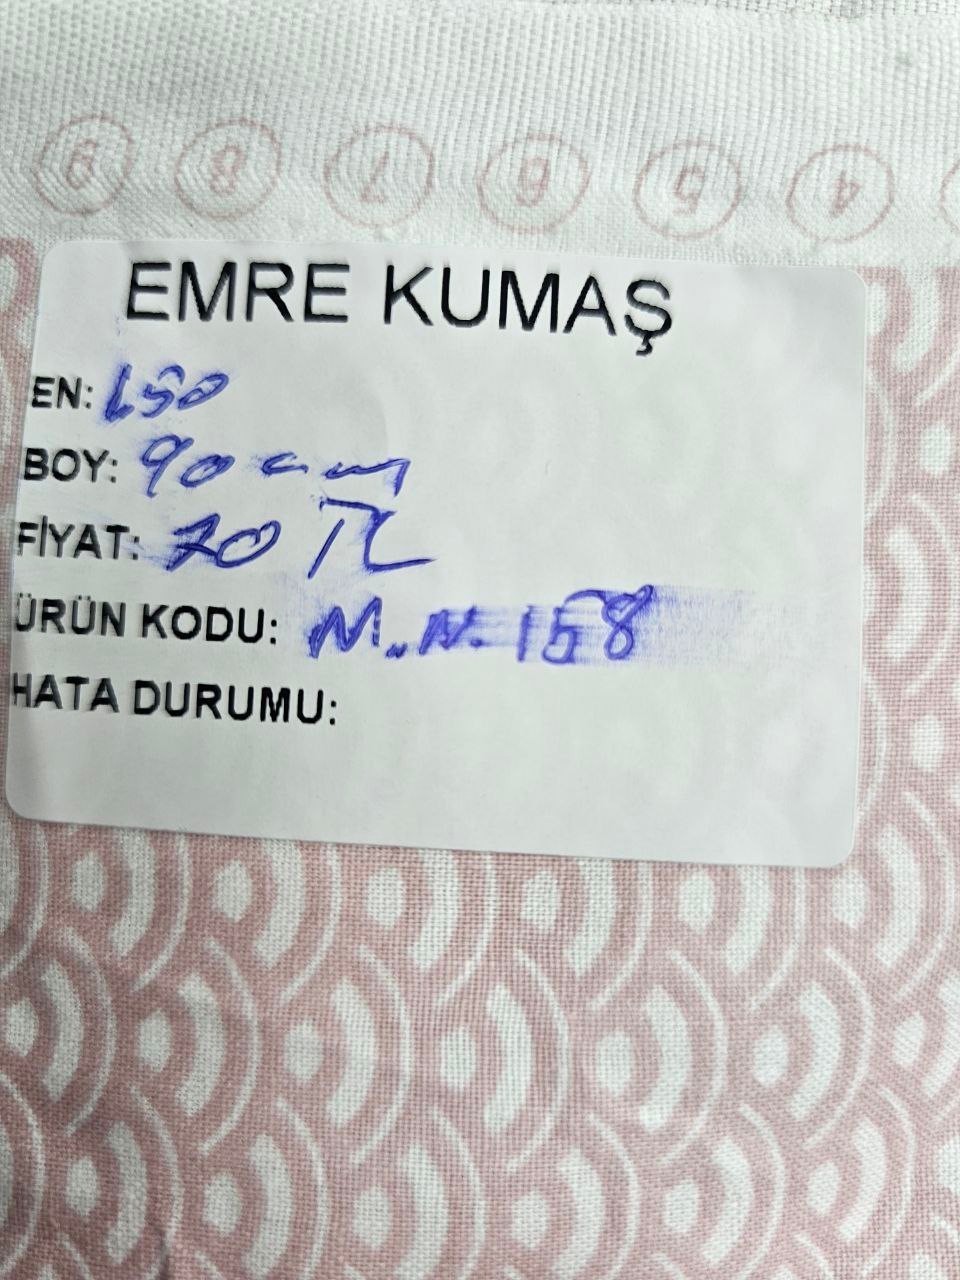 9 8 7 6 5 4
EMRE KUMAŞ
EN: 150
BOY: 90 cm
FİYAT: 70 TL
ÜRÜN KODU: M.N. 158
HATA DURUMU: